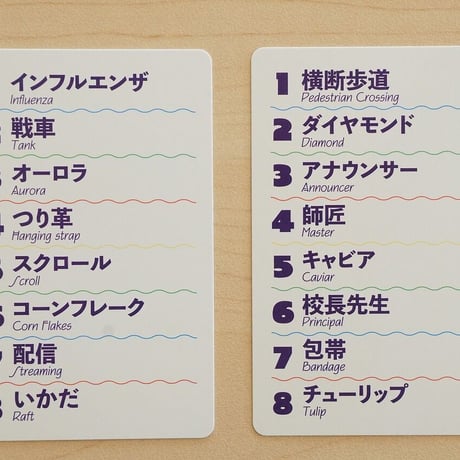 インフルエンザ
Influenza
戦車
Tank
オーロラ
Aurora
つり革
Hanging strap
スクロール
Scroll
コーンフレーク
Corn Flakes
配信
Streaming
8 いかだ
Raft
1 横断歩道
Pedestrian Crossing
2 ダイヤモンド
Diamond
3 アナウンサー
Announcer
4 師匠
Master
5 キャビア
Caviar
6 校長先生
Principal
7 包帯
Bandage
8 チューリップ
Tulip